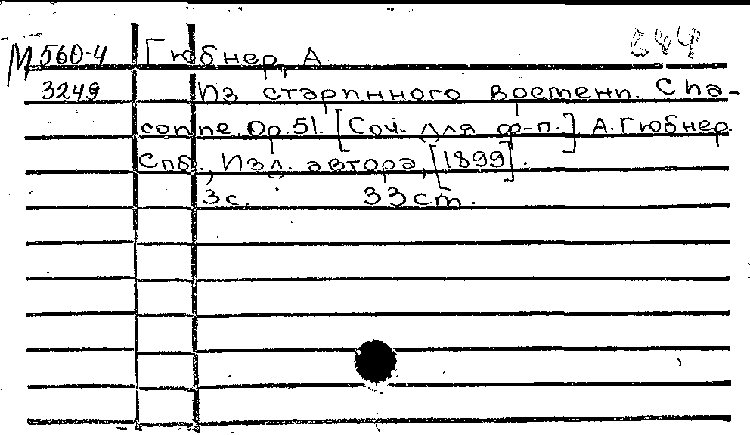 М 560-4 Гюбнер, А. 244
3249 Из старинного времени. Cha-
conne. Op. 51. [Соч. для ф-п.] А. Гюбнер.
Спб., Изд. автора, [1899].
3 с. 33 cm.